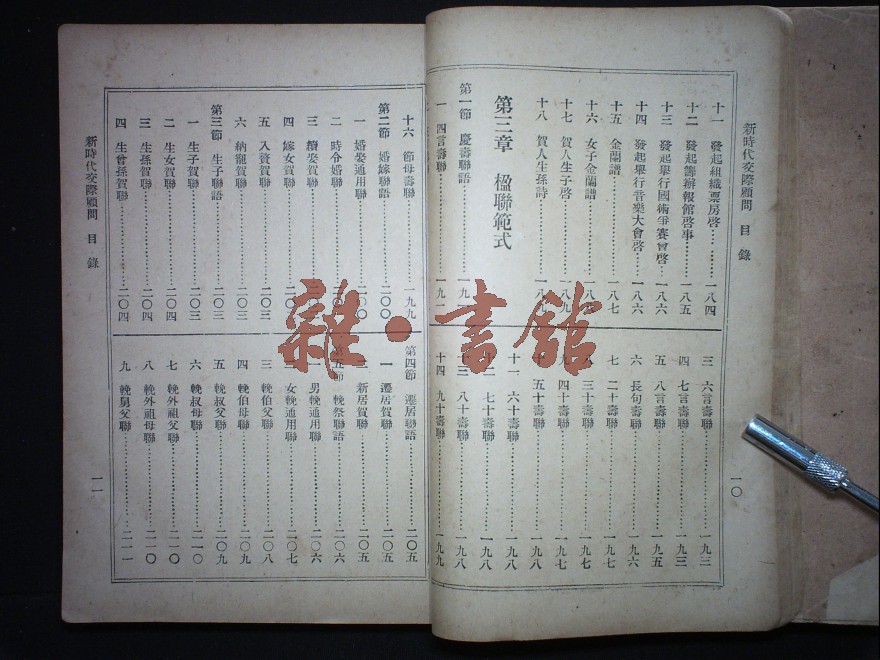 新時代交際顧問 目錄
十一 發起組織票房啓………一八四
十二 發起籌辦報館啓事………一八五
十三 發起舉行國術爭賽會啓…一八六
十四 發起舉行音樂大會啓……一八六
十五 金蘭譜………一八七
十六 女子金蘭譜………
十七 賀人生子啓………一八九
十八 賀人生孫詩………一八九
第三章 楹聯範式
第一節 慶壽聯語………
一 四言壽聯………一九一
三 六言壽聯………一九三
四 七言壽聯………一九三
五 八言壽聯………一九五
六 長句壽聯………一九六
七 二十壽聯………一九七
八 三十壽聯………一九七
九 四十壽聯………一九七
五十壽聯………一九八
十一 六十壽聯………一九八
十二 七十壽聯………一九八
十三 八十壽聯………一九八
十四 九十壽聯………一九九
一〇
十六 節母壽聯………一九九
第二節 婚嫁聯語………二〇〇
一 婚娶通用聯………二〇〇
二 時令婚聯………
三 續娶賀聯………
四 嫁女賀聯………
五 入贅賀聯………二〇三
六 納寵賀聯………二〇三
第三節 生子聯語………二〇三
一 生子賀聯………二〇三
二 生女賀聯………二〇四
三 生孫賀聯………二〇四
四 生曾孫賀聯………二〇四
新時代交際顧問 目錄
第四節 遷居聯語………二〇五
一 遷居賀聯………二〇五
二 新居賀聯………二〇五
第五節 輓祭聯語………二〇六
一 男輓通用聯………二〇六
二 女輓通用聯………二〇七
三 輓伯父聯………二〇八
四 輓伯母聯………二〇八
五 輓叔父聯………二〇九
六 輓叔母聯………二一〇
七 輓外祖父聯………二一〇
八 輓外祖母聯………二一〇
九 輓舅父聯………二一一
一一
雜·書館